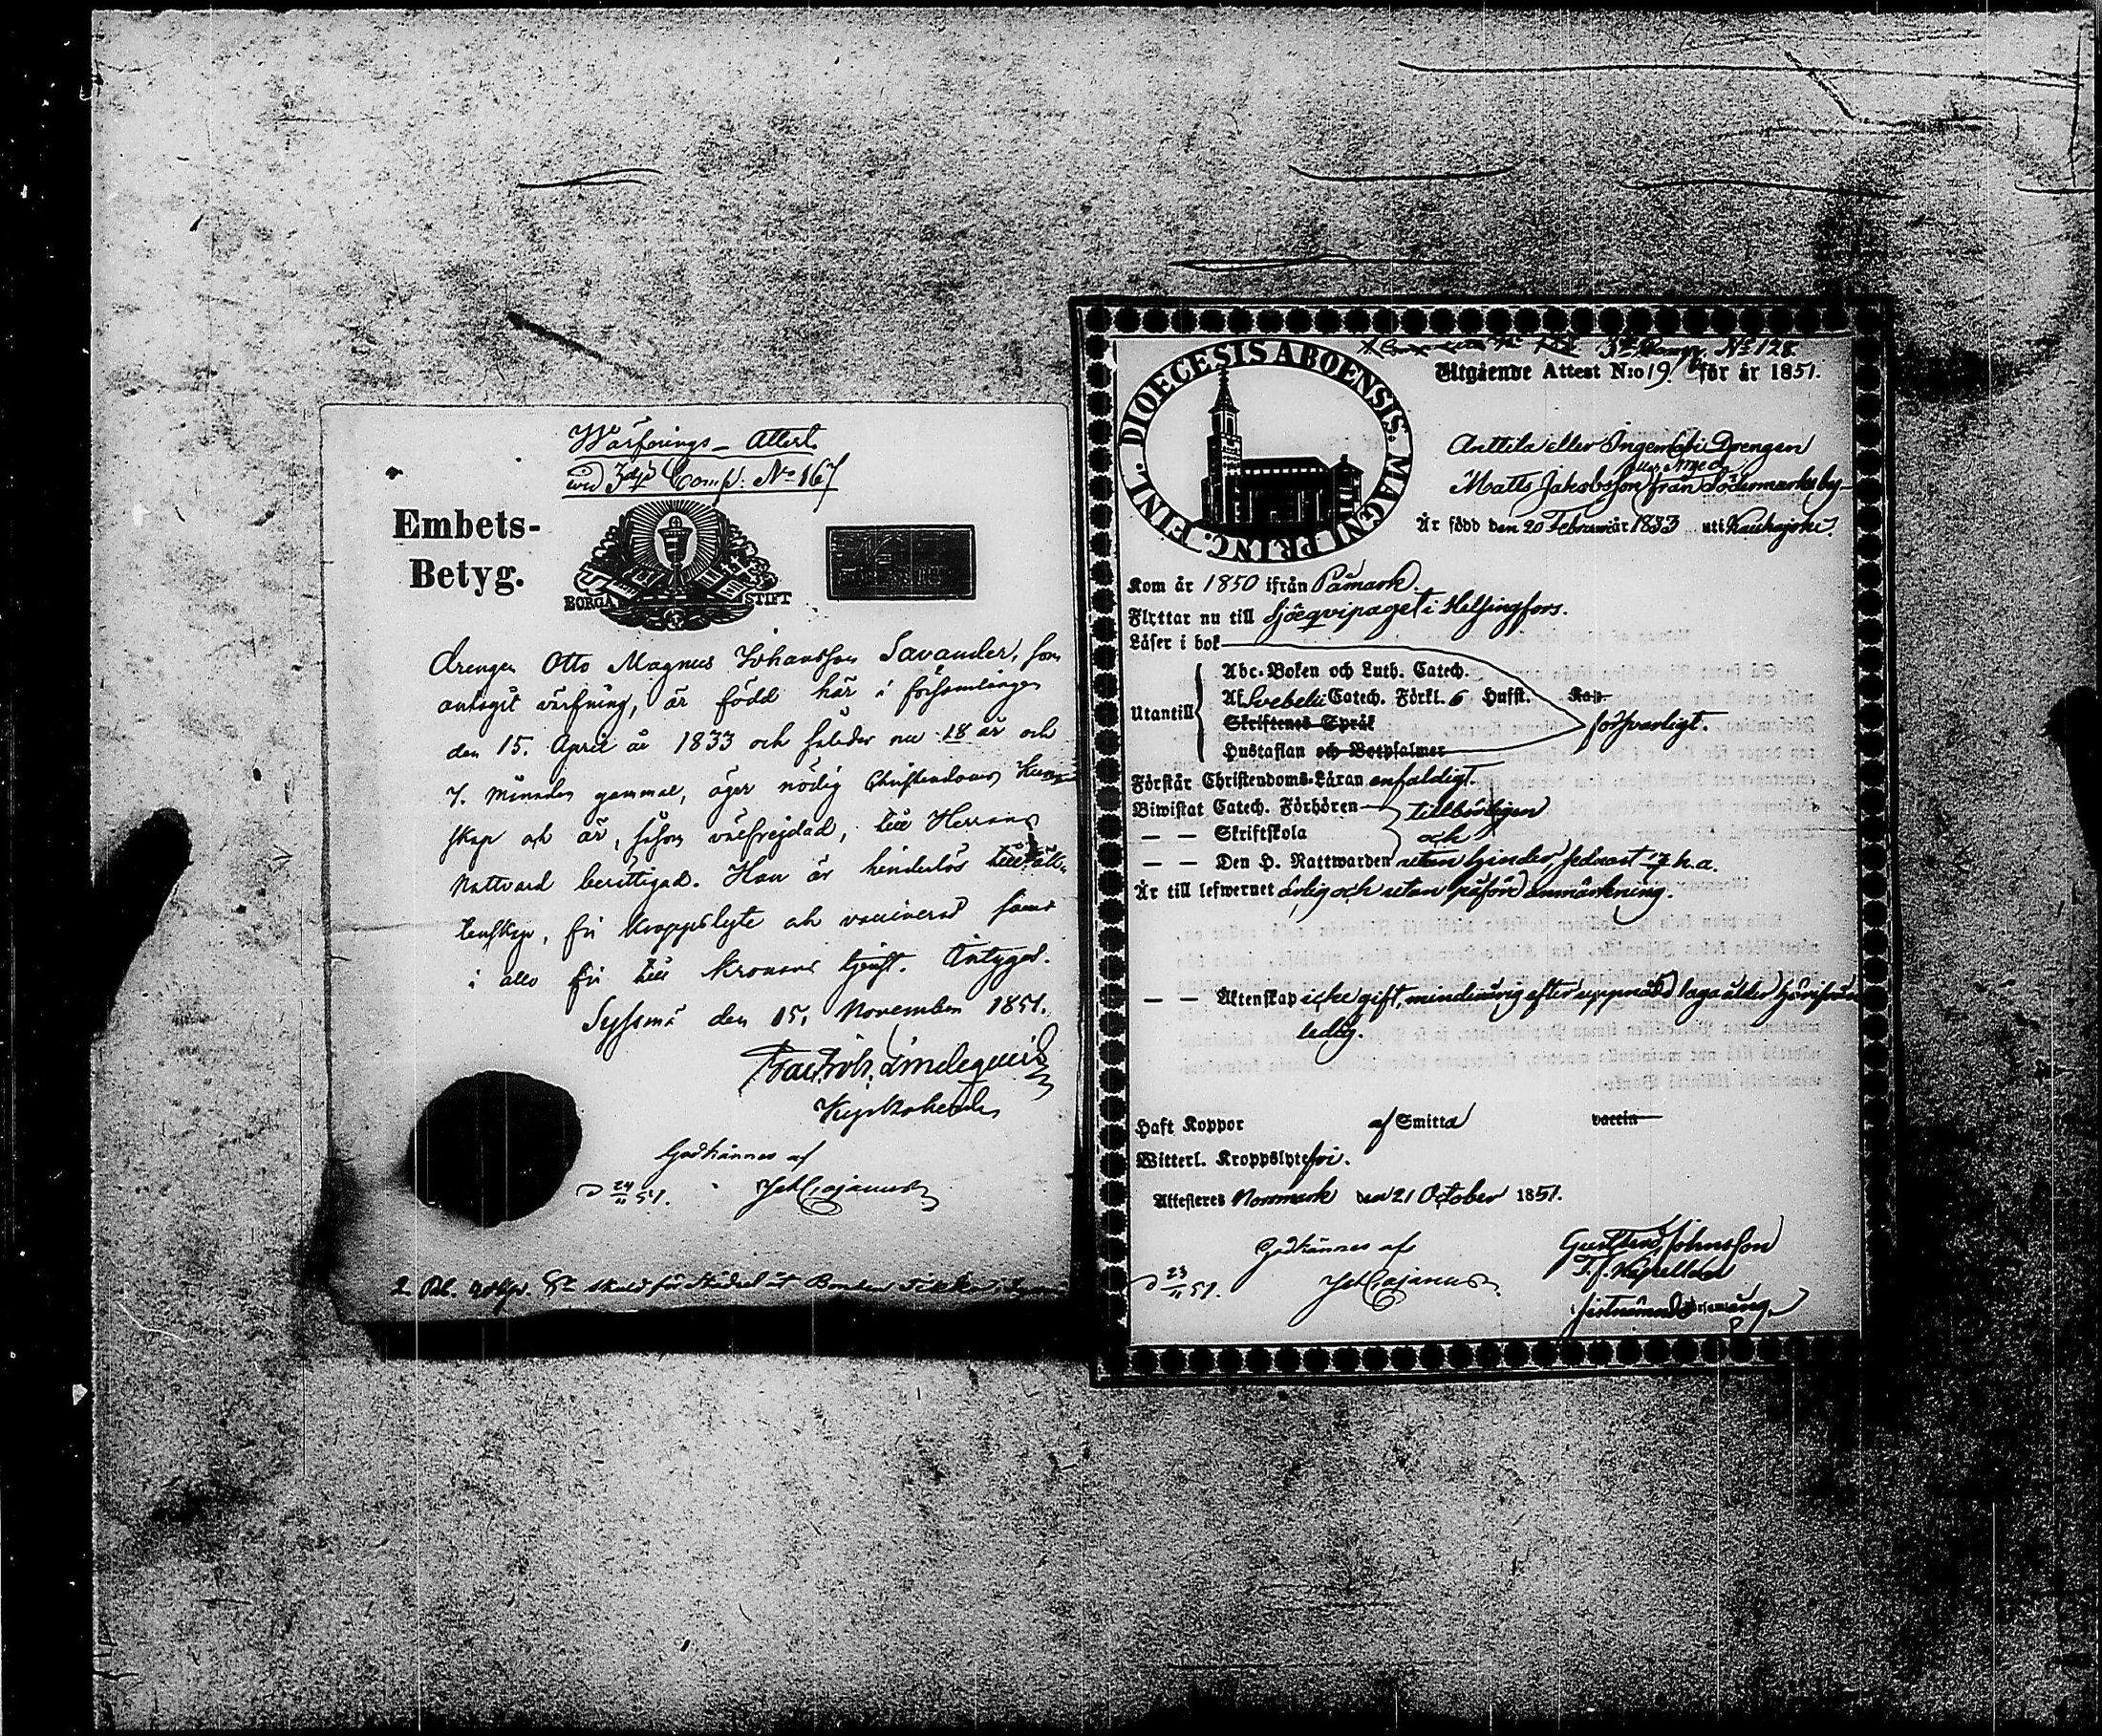 Wärfnings-Attest
vid 3dje Comp. No 167
Embets-
Betyg.
BORGÅ STIFT
Drengen Otto Magnus Johansson Savander, som
antagit värfning, är född här i församlingen
den 15. April år 1833 och således nu 18 år och
7. månader gammal, äger nödig Christendoms kun-
skap och är, såsom välfrejdad, till Herrans
Nattvard berättigad. Han är hinderlös till äk-
tenskap, fri kroppslyte och vaccinerad samt
i allo fri till Kronans tjenst. Intygad.
Syssmä den 15. November 1851.
Lindequist
Kyrkoherde
Godkännes af
d 24/11 51. Cajanus
2 Rbl. skuld för Städsel åt Bonden
DIOECESIS ABOENSIS. MAGNI PRINC. FINL.
3dje Comp. No 128
Utgående Attest N:o 19 för år 1851.
Anttila eller Ingemari Drengen
Matts Jakobsson från Södermarks by
Är född den 20 Februari år 1833 uti Kauhajoki.
Kom år 1850 ifrån Påmark.
Flyttar nu till Sjöeqvipaget i Helsingfors.
Läser i bok
Abc-Boken och Luth. Catech.
Utantill Af Svebelii Catech. Förkl. 6 Hufst. Kap.
Skriftenes Språk försvarligt.
Hustaflan och Botpsalmer
Förstår Christendoms-Läran enfaldigt.
Biwistat Catech. Förhören tillbörligen
— — Skriftskola och
— — Den H. Nattwarden utan hinder, sednast 17 h.a.
Är till lefwernet ärlig och utan påförd anmärkning.
— — Äktenskap icke gift, minderårig efter uppnådd laga ålder härifrån
ledig.
Haft Koppor af Smitta vaccin
Witterl. Kroppslyte fri.
Attesteras Norrmark den 21 October 1851.
Godkännes af
d 23/11 51. Cajanus
Gust. Johnsson
T.f. Kapellan